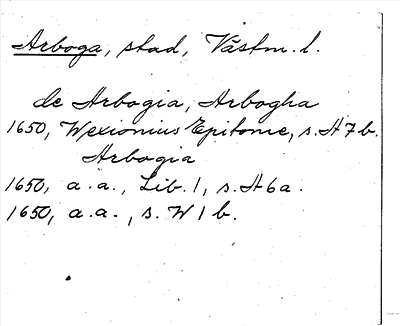 Arboga, stad, Västm. l.
de Arbogia, Arbogha
1650, Wexionius Epitome, s. H 7 b.
Arbogia
1650, a.a., Lib. 1, s. H 6 a.
1650, a.a., s. W 1 b.